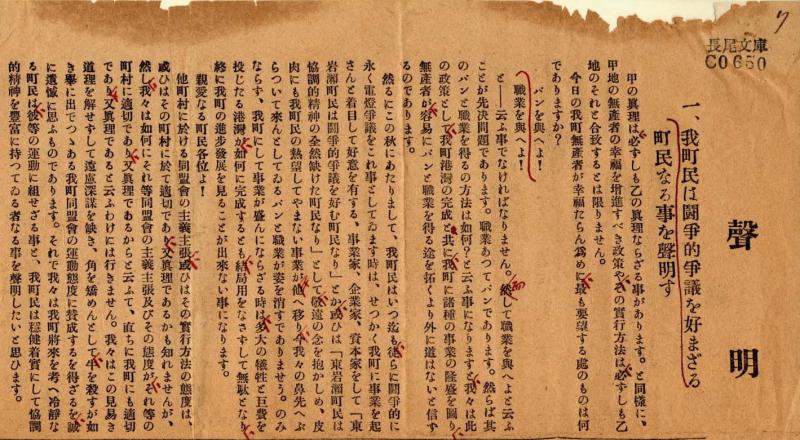 聲明
一、我町民は鬪爭的爭議を好まざる
町民なる事を聲明す
甲の眞理は必ずしも乙の眞理ならざる事があります。と同樣に、
甲地の無產者の幸福を增進すべき政策やその實行方法は必ずしも乙
地のそれと合致するとは限りません。
今日の我町無產者が幸福たらん爲めに最も要望する處のものは何
でありますか？
パンを與へよ！
職業を與へよ！
と――云ふ事でなければなりません。然して職業を與へよと云ふ
ことが先決問題であります。職業あつてパンであります。然らば其
のパンと職業を得るの方法は如何？と云ふ事になりますと我々は此
の政策として我町港灣の完成と共に我町に諸種の事業の隆盛を圖り
無產者が容易にパンと職業を得る途を拓くより外に道はないと信ず
るのであります。
然るにこの秋にあたりまして、我町民はいつ迄も徒らに鬪爭的に
永く電燈爭議をこれ事としてゐます時は、せつかく我町に事業を起
さんと着目して好意を有する、事業家、企業家、資本家をして「東
岩瀨町民は鬪爭的爭議を好む町民なり」とか或ひは「東岩瀨町民は
協調的精神の全然缺けた町民なり」として敬遠の念を抱かしめ、皮
肉にも我町民の熱望してやまない事業が他へ移り今我々の鼻先へぶ
らついて來んとしてゐるパンと職業が姿を消すでありませう。のみ
ならず、我町にして事業が盛んにならざる時は多大の犧牲と巨費を
投じたる港灣が如何に完成するとも結局用をなさずして無駄となり
終に我町の進步發展を見ることが出來ない事になります。
親愛なる町民各位よ！
他町村に於ける同盟會の主義主張或ひはその實行方法の態度は、
或ひはその町村に於て適切であり又眞理であるかも知れませんが、
然し我々は如何にそれ等同盟會の主義主張及びその態度がそれ等の
町村に適切であり又眞理であるからと云ふて、直ちに我町にも適切
であり又眞理であると云ふわけには行きません。我々はこの見易き
道理を解せずして遠慮深謀を缺き、角を矯めんとして牛を殺すが如
き擧に出でつゝある我町同盟會の運動態度に贊成するを得ざるを誠
に遺憾に思ふものであります。それで我々は我町將來を考へ冷靜な
る町民は彼等の運動に組せざる事と、我町民は穩健着實にして協調
的精神を豐富に持つてゐる者なる事を聲明したいと思ひます。
長尾文庫
CO650